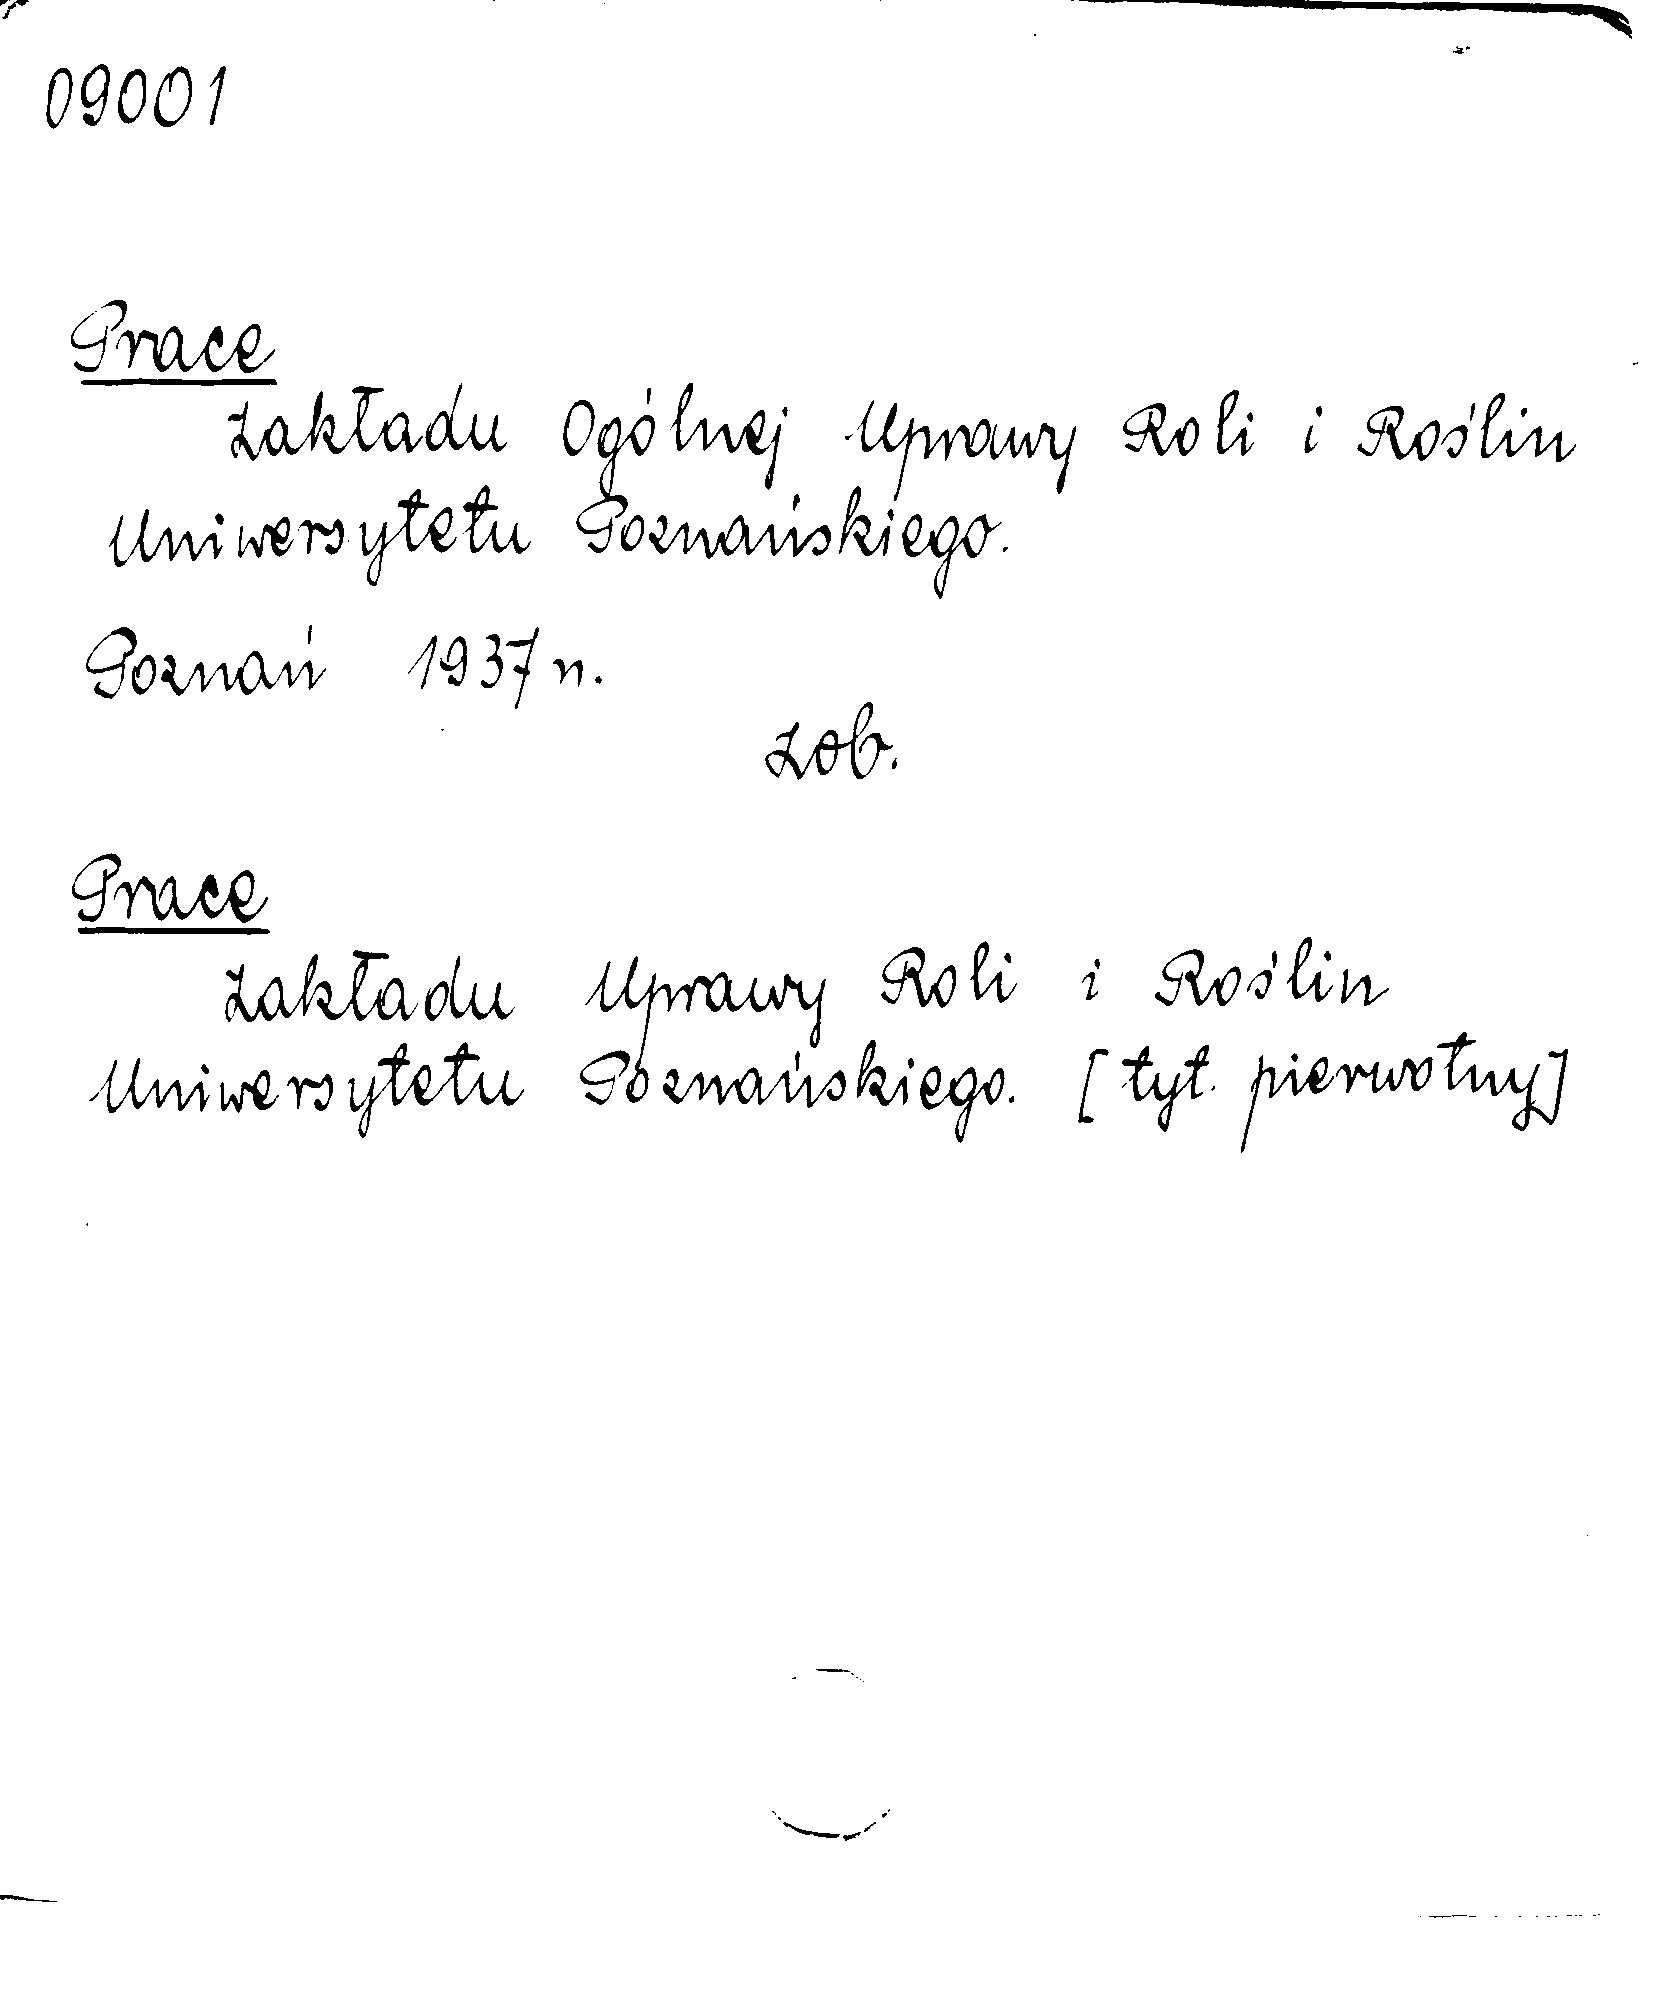 09001
Prace
Zakładu Ogólnej Uprawy Roli i Roślin
Uniwersytetu Poznańskiego.
Poznań 1937 n.
Zob.
Prace
Zakładu Uprawy Roli i Roślin
Uniwersytetu Poznańskiego. [tyt. pierwotny]